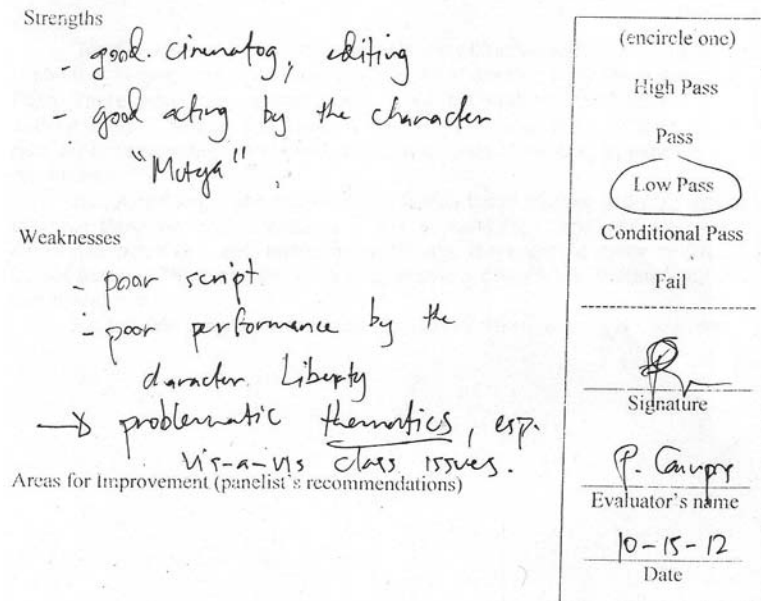 Strengths
- good. cinematog, editing
- good acting by the character
"Mutya"
Weaknesses
- poor script
- poor performance by the
character Liberty
→ problematic thematics, esp.
vis-a-vis class issues.
Areas for Improvement (panelist's recommendations)
(encircle one)
High Pass
Pass
Low Pass
Conditional Pass
Fail
Signature
P.
Evaluator's name
10-15-12
Date